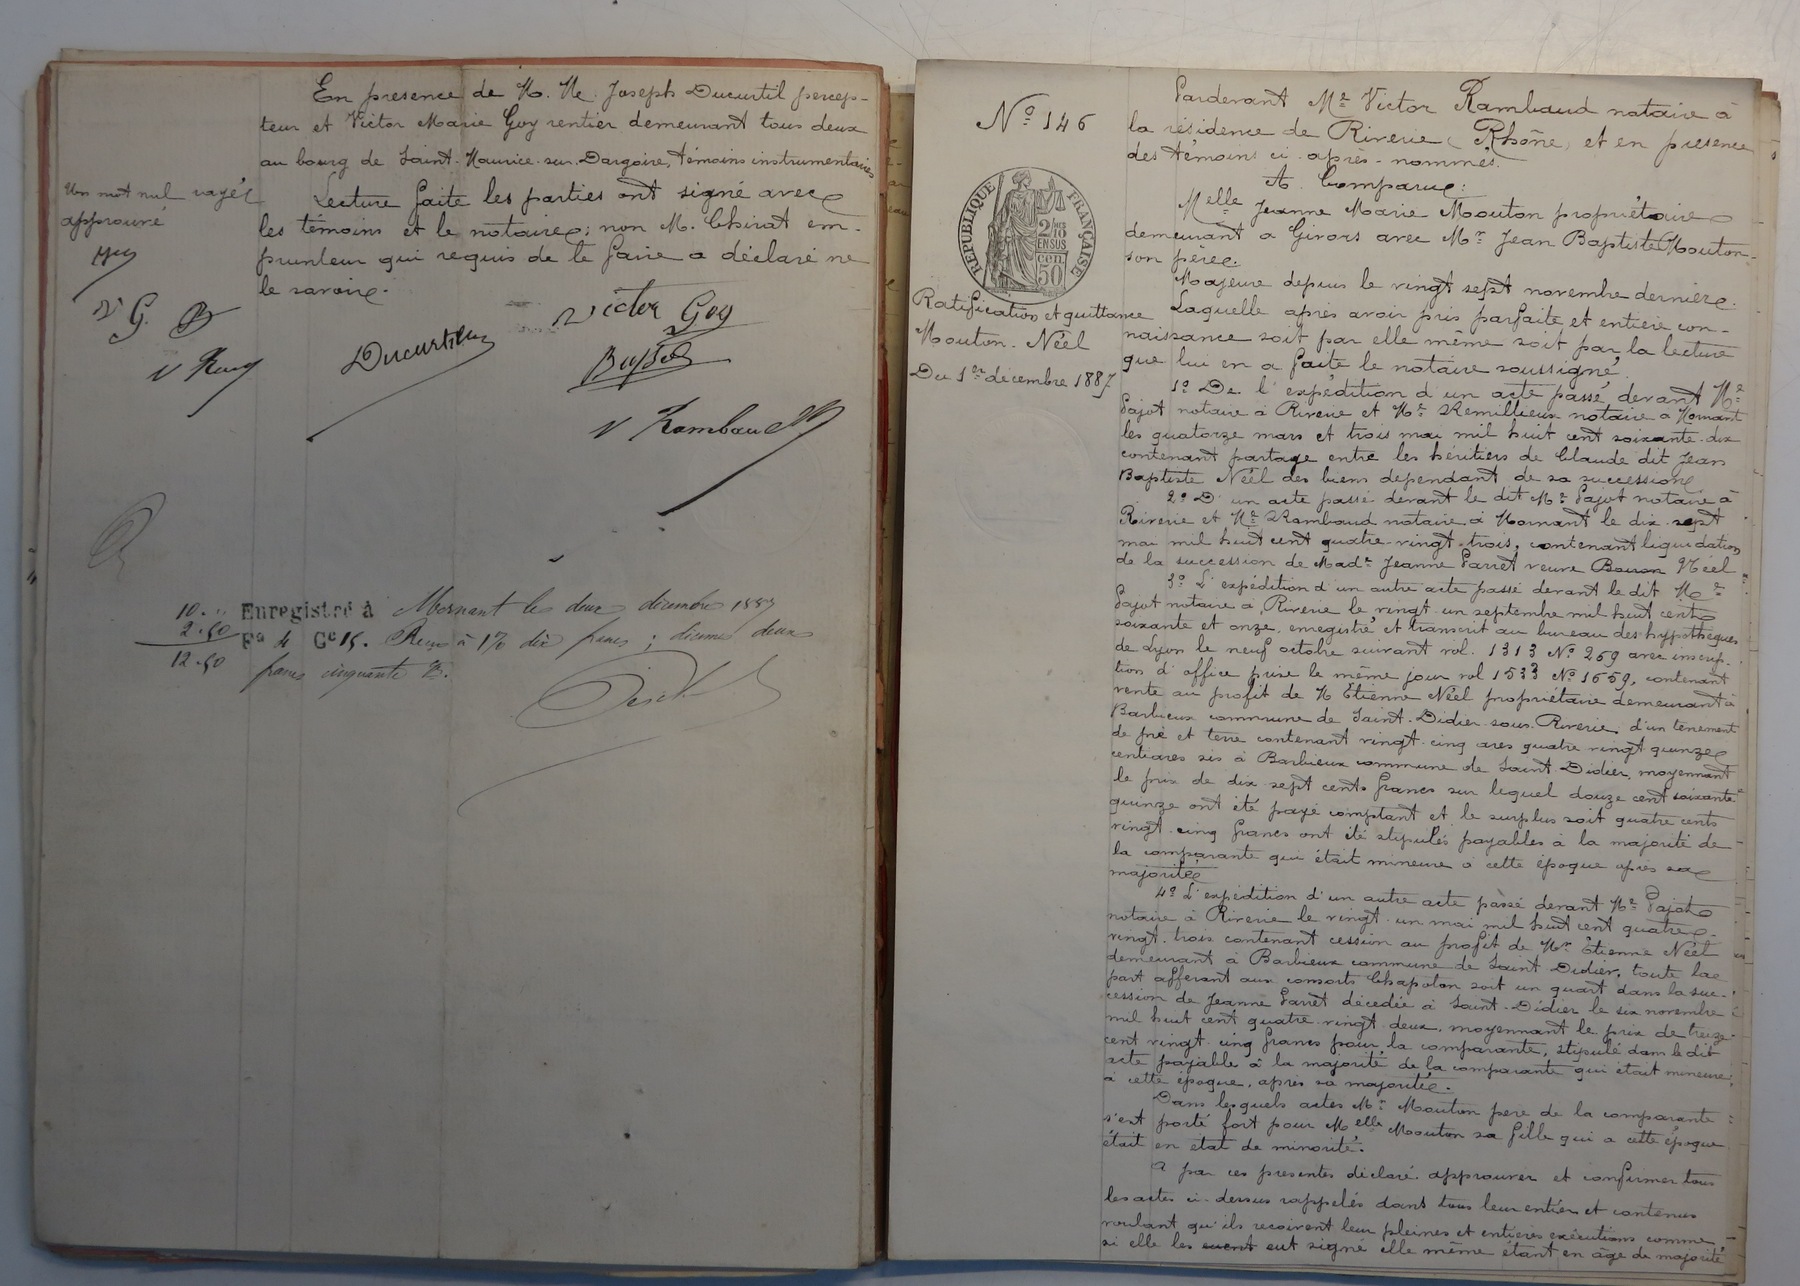 En presence de M. M. Joseph Ducurtil percep-
teur et Victor Marie Goy rentier demeurant tous deux
au bourg de Saint-Maurice-sur-Dargoire, témoins instrumentaires
Un mot nul rayé
approuvé
Lecture faite les parties ont signé avec
les témoins et le notaire; non M. Chirat em-
prunteur qui requis de le faire a déclaré ne
le savoir.
V G. B
V Ra
Ducurtil
Victor Goy
V Rambaud
10. "
2.50
12.50
Enregistré à Mornant le deux décembre 1887
Fo 4 Cc 15. Reçu à 1% dix francs; décimes deux
francs cinquante c.
No 146
RÉPUBLIQUE FRANÇAISE
2/10
EN SUS
50 cen.
Ratification et quittance
Mouton-Néel
Du 1er décembre 1887
Pardevant Me Victor Rambaud notaire à
la résidence de Riverie (Rhône) et en presence
des témoins ci-après-nommés.
A Comparu:
Melle Jeanne Marie Mouton propriétaire
demeurant a Givors avec Mr Jean Baptiste Mouton
son père.
Majeure depuis le vingt sept novembre dernier.
Laquelle après avoir pris parfaite et entière con-
naissance soit par elle même soit par la lecture
que lui en a faite le notaire soussigné.
1o De l'expédition d'un acte passé devant Me
Pajot notaire à Riverie et Me Remillieux notaire a Mornant
les quatorze mars et trois mai mil huit cent soixante-dix
contenant partage entre les héritiers de Claude dit Jean
Baptiste Néel des biens dépendant de sa succession.
2o D'un acte passé devant le dit Me Pajot notaire à
Riverie et Me Rambaud notaire à Mornant le dix-sept
mai mil huit cent quatre-vingt-trois, contenant liquidation
de la succession de Made Jeanne Parret veuve Néel
3o L'expédition d'un autre acte passé devant le dit Me
Pajot notaire à Riverie le vingt-un septembre mil huit cent
soixante et onze, enregistré et transcrit au bureau des hypothèques
de Lyon le neuf octobre suivant vol. 1313 No 269 avec inscrip-
tion d'office prise le même jour vol 1533 No 1659, contenant
vente au profit de M Etienne Néel propriétaire demeurant à
Barbieux commune de Saint-Didier-sous-Riverie, d'un tenement
de pré et terre contenant vingt-cinq ares quatre vingt quinze
centiares sis à Barbieux commune de Saint Didier, moyennant
le prix de dix-sept cents francs sur lequel douze cent soixante
quinze ont été payé comptant et le surplus soit quatre cents
vingt-cinq francs ont été stipulés payables à la majorité de
la comparante qui était mineure à cette époque après sa
majorité
4o L'expédition d'un autre acte passé devant Me Pajot
notaire à Riverie le vingt-un mai mil huit cent quatre-
vingt-trois contenant cession au profit de Mr Étienne Néel
demeurant à Barbieux commune de Saint Didier, toute la
part afférant aux consorts Chapolon soit un quart dans la suc-
cession de Jeanne Parret décédée à Saint-Didier le six novembre
mil huit cent quatre-vingt-deux, moyennant le prix de treize
cent vingt-cinq francs pour la comparante, stipulé dans le dit
acte payable à la majorité de la comparante qui était mineure
à cette époque, après sa majorité.
Dans lesquels actes Mr Mouton père de la comparante
s'est porté fort pour Melle Mouton sa fille qui a cette époque
était en état de minorité.
A par ces presentes déclaré approuver et confirmer tous
les actes ci-dessus rappelés dans tous leur entier et contenus
voulant qu'ils reçoivent leur pleines et entieres exécutions comme
si elle les eut signé elle même étant en âge de majorité